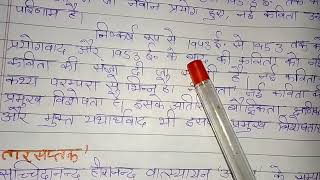 परिणाम है। जो नवीन प्रयोग हुए, नई कविता उसी
निष्कर्ष रूप से १९४३ ई० से १९५३ तक की
प्रयोगवाद और १९५३ ई० के बाद की कविता को नई
कविता की संज्ञा दी जा
कथ्य परम्परा से भिन्न है। नई कविता की
प्रमुख विशेषता है, इसके बौद्धिकता
और मुक्त यथार्थवाद भी इसकी प्रमुख विशेषता
तारसप्तक'
सच्चिदानन्द हीरानन्द वात्स्यायन के